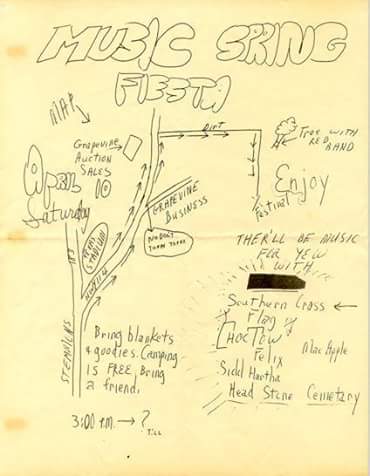 MUSIC SPRING
FIESTA
MAP
DIRT
Grapevine
Auction
SALES
Tree with
RED
BAND
April
10
Saturday
Enjoy
Festival
GRAPEVINE
BUSINESS
TEXAS
STADIUM
HWY 114
THER'LL BE MUSIC
FER YEW
WITH
Southern Cross
Flag
CHOCTOW
Felix
Mac Apple
Sidd Hartha
Head Stone Cemetary
Bring blankets
& goodies. Camping
is FREE. Bring
a friend.
3:00 P.M. → ?
Till